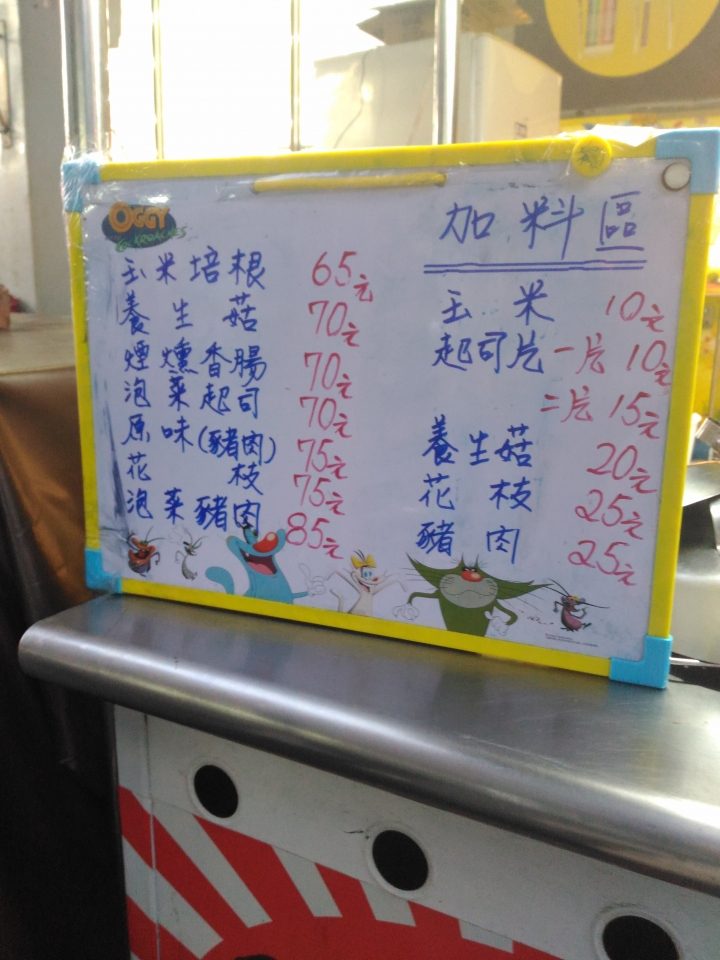 OGGY
玉米培根 65元
養生菇 70元
煙燻香腸 70元
泡菜起司 70元
原味(豬肉) 75元
花枝 75元
泡菜豬肉 85元
加料區
玉米 10元
起司片 一片 10元
二片 15元
養生菇 20元
花枝 25元
豬肉 25元